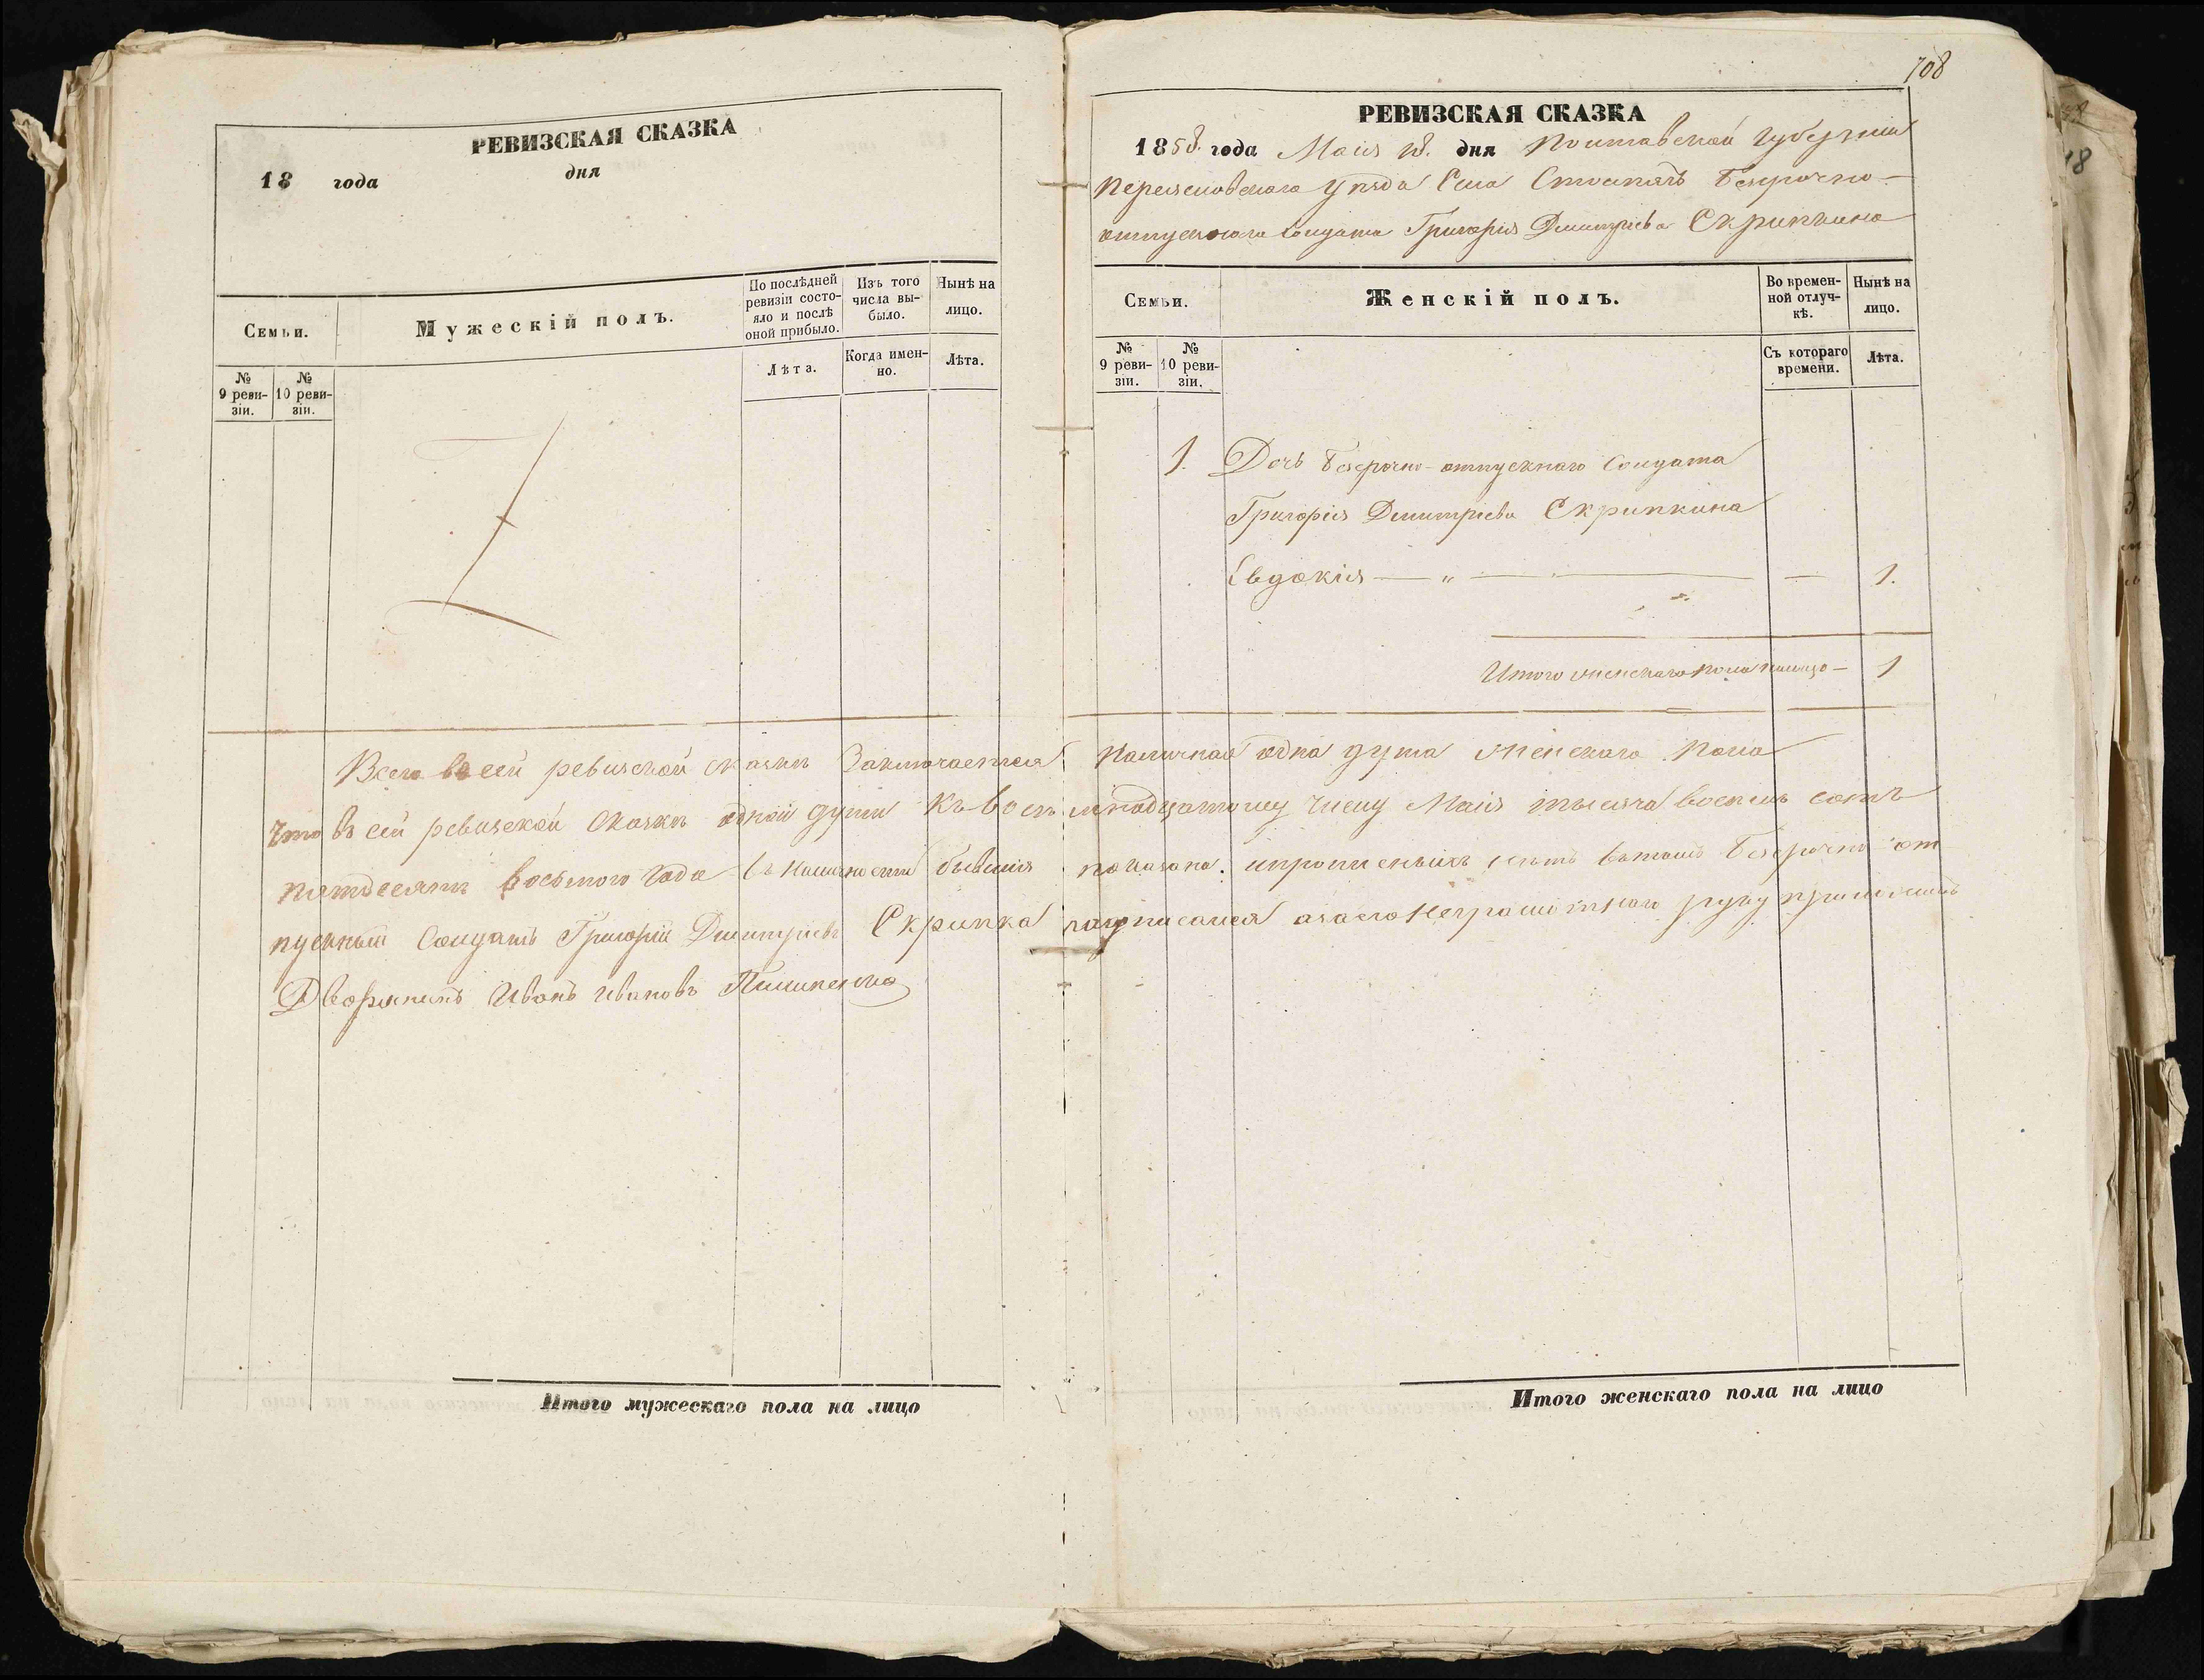 РЕВИЗСКАЯ СКАЗКА
18 года дня
Семьи.
Мужескій полъ.
По послѣдней ревизіи состояло и послѣ оной прибыло.
Изъ того числа выбыло.
Нынѣ на лицо.
№ 9 ревизіи.
№ 10 ревизіи.
Лѣта.
Когда именно.
Лѣта.
708
РЕВИЗСКАЯ СКАЗКА
1858. года Маія 18. дня Полтавской Губерніи
Переяславскаго уѣзда Села Безсрочно-
отпускного Солдата Григорія Димитріева Скрипкина
Семьи.
Женскій полъ.
Во временной отлучкѣ.
Нынѣ на лицо.
№ 9 ревизіи.
№ 10 ревизіи.
Съ котораго времени.
Лѣта.
1. Дочь безсрочно-отпускнаго Солдата
Григорія Димитріева Скрипкина
Евдокія — „ — — 1.
Итого женскаго пола налицо — 1
Всего въ сей ревизской сказкѣ Заключается Наличная одна душа женскаго пола
Что въ сей ревизской Сказкѣ одной души Къ Восемнадцатому числу Маія тысяча восемь сотъ
пятдесятъ восьмого Года въ наличности бывшія показана. ипрописныхъ нѣтъ въ томъ Безсрочно от
пускный Солдатъ Григорій Димитріевъ Скрипка неграмотнаго руку приложилъ
Дворянинъ Иванъ Ивановъ
Итого мужескаго пола на лицо
Итого женскаго пола на лицо
18